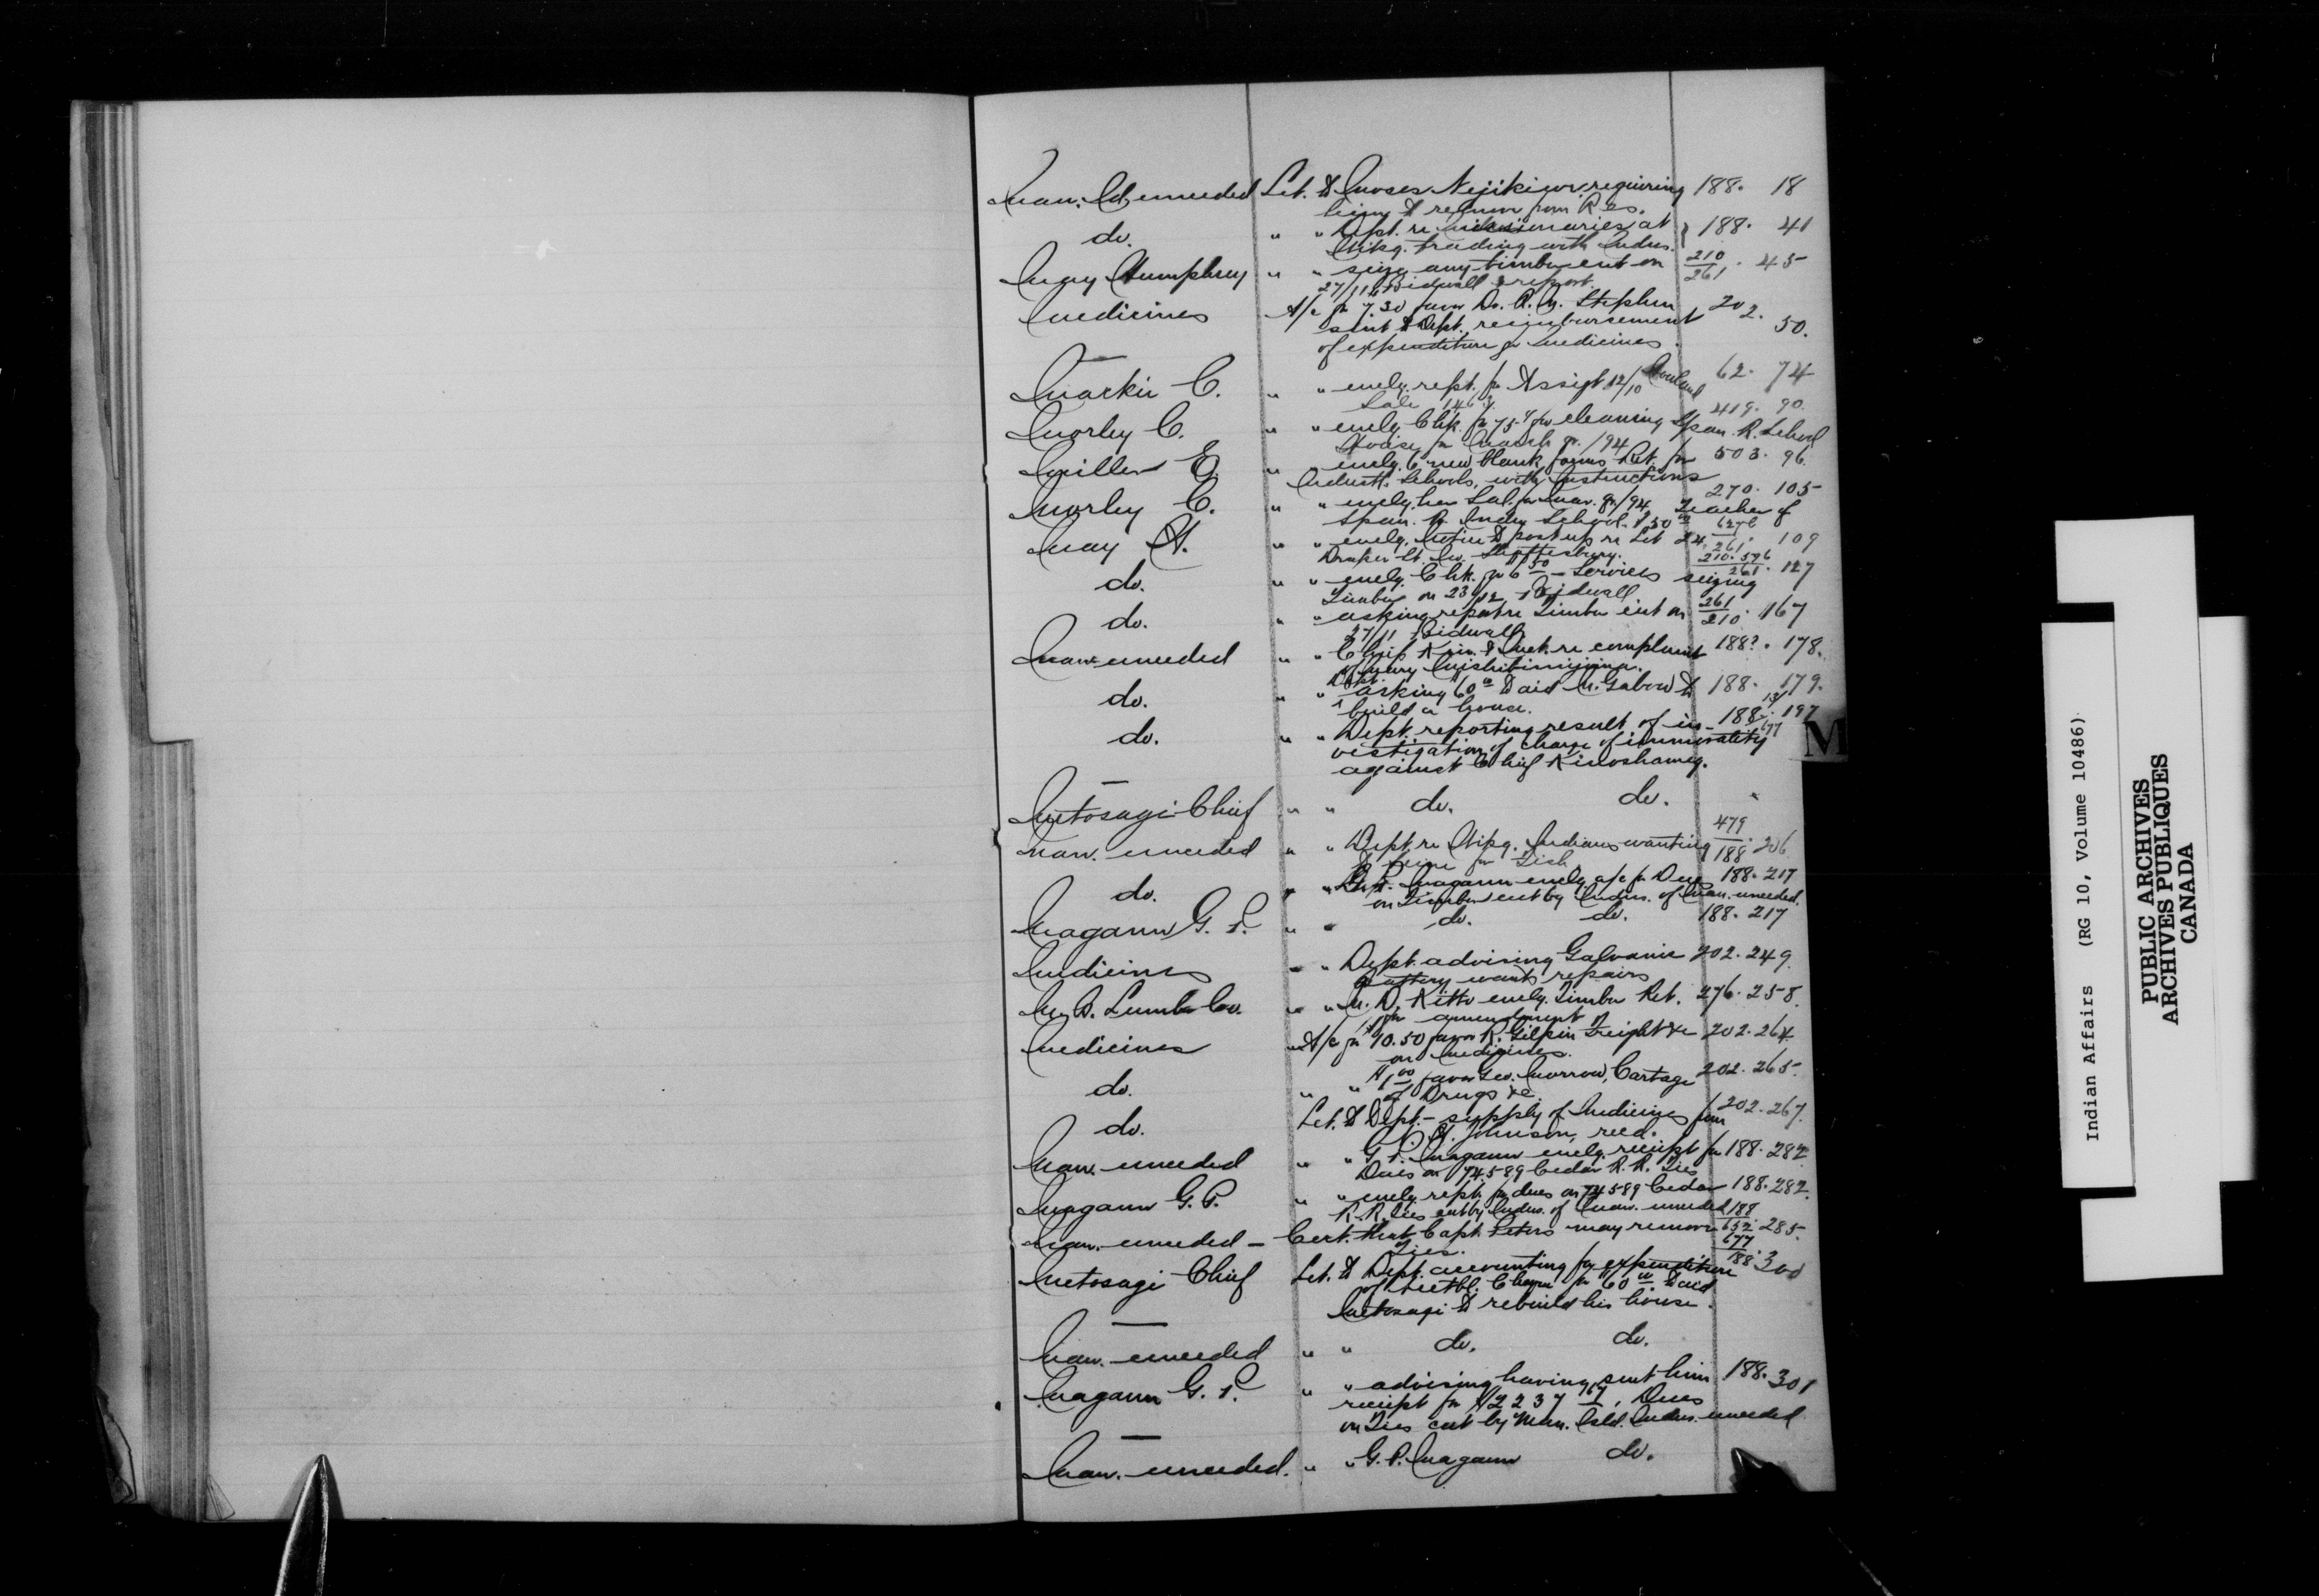 Man. Isld unceeded Let. to Moses Nejikiwv. requiring 188. 18
him to remove from Res.
do. " " Dept. re Missionaries at 188. 41
Wikg. trading with Indns.
May Humphrey " " seize any timber cut on 210/261. 45
27/11 Bidwell & report.
Medicines A/c for 7.30 favor Dr. R. M. Stephen 202. 50.
sent to Dept. reimbursement
of expenditure for medicines.
Markie C. " " encly. rept. for Assigt 12/10 62. 74
Sale 146
Morley C. " " encly. Chk. for 75¢ for cleaning Span. R. School 419. 90.
House for March qr. /94
Miller E. " encly. 6 new blank forms Ret. for 503. 96
Industl. Schools, with Instructions
Morley C. " " encly. her Sal. for Mar. qr. /94 Teacher of 270. 105
Span. R. Indn School $50
May H. " " encly. Notice to post up re Lot 24 261. 109
Draper St. Tn. Shaftesbury.
do. " " encly. Chk. for 6 50 – Services seizing 210. 596/261. 127
Timber on 23/12 Bidwell
do. " " asking report re Timber cut on 261/210. 167
27/11 Bidwell
Man. unceeded " " Chief Kin. to Meet. re complaint 188?. 178.
of Mary
do. " " Dept. asking 60 00 to aid M. Gabow to 188. 179.
build a house.
do. " " Dept. reporting result of in- 188. 197
vestigation of charge of immorality
against Chief Kinoshameg.
Metosagi Chief " " do. do.
Man. unceeded " " Dept. re Wikg. Indians wanting 479/188. 206
to seine for Fish
do. " " G. P. Magann encly. a/c for Dues 188. 217
on Timber cut by Indns. of Man. unceeded.
Magann G. P. " " do. do. 188. 217
Medicines " " Dept. advising Galvanic 202. 249.
Battery wants repairs
M. D. Lumber Co. " " M. D. Kitto encly. Timber Ret. 276. 258.
for amendment
Medicines " A/c for $10.50 favor R. Gilpin Freight &c 202. 264
on Medicines.
do. " " $1 00 favor Geo. Morrow, Cartage 202. 265.
of Drugs &c.
do. Let. to Dept. – supply of Medicines from 202. 267.
Johnson, recd.
Man. unceeded " " G. P. Magann encly. receipt for 188. 282
Dues on 74589 Cedar R. R. Ties
Magann G. P. " " encly. rept. for dues on 74589 Cedar 188. 282.
R. R. Ties cut by Indns. of Man. unceeded
Man. unceeded – Cert. that Capt. Peters may remove 188/652/677. 285.
Ties.
Metosagi Chief Let. to Dept. accounting for expenditure 188. 300
of Chegn for 60 00 to aid
Metosagi to rebuild his house.
Man. unceeded " " do. do.
Magann G. P. " " advising having sent him 188. 301
receipt for $2237 67, Dues
on Ties cut by Man. Isld. Indns. unceeded
Man. unceeded. " " G. P. Magann do.
M
Indian Affairs (RG 10, Volume 10486)
PUBLIC ARCHIVES
ARCHIVES PUBLIQUES
CANADA